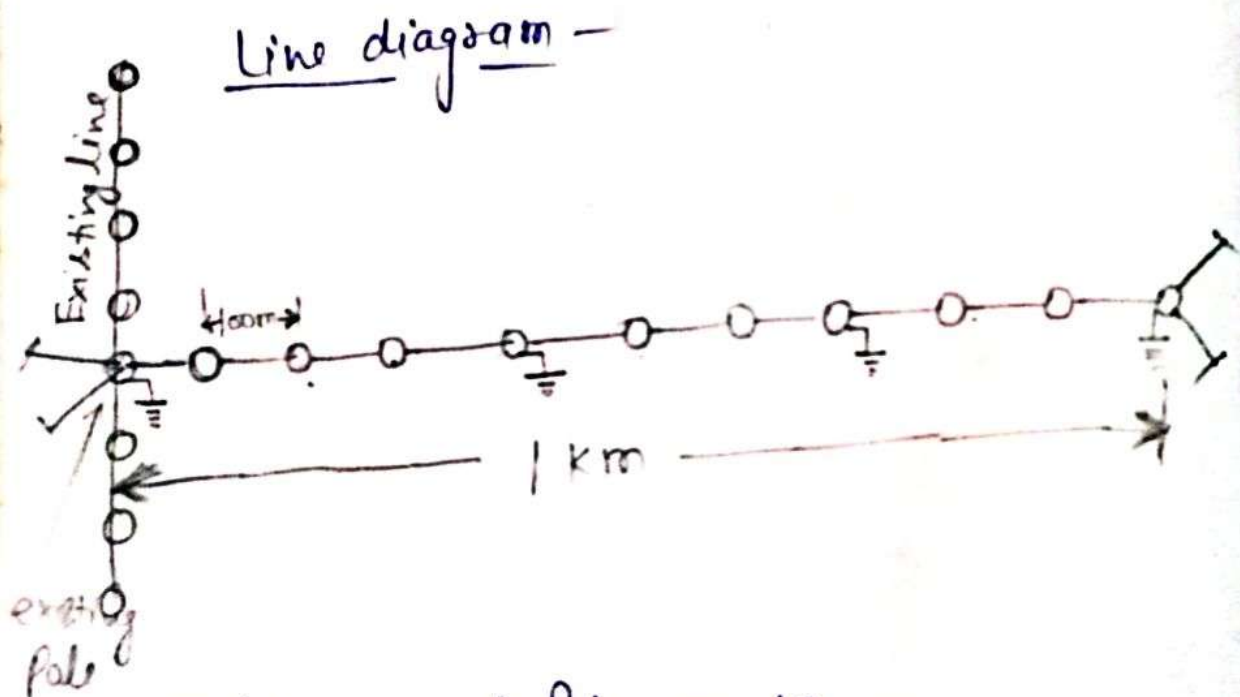 Line diagram -
Existing line
100m
1 km
existing
Pole